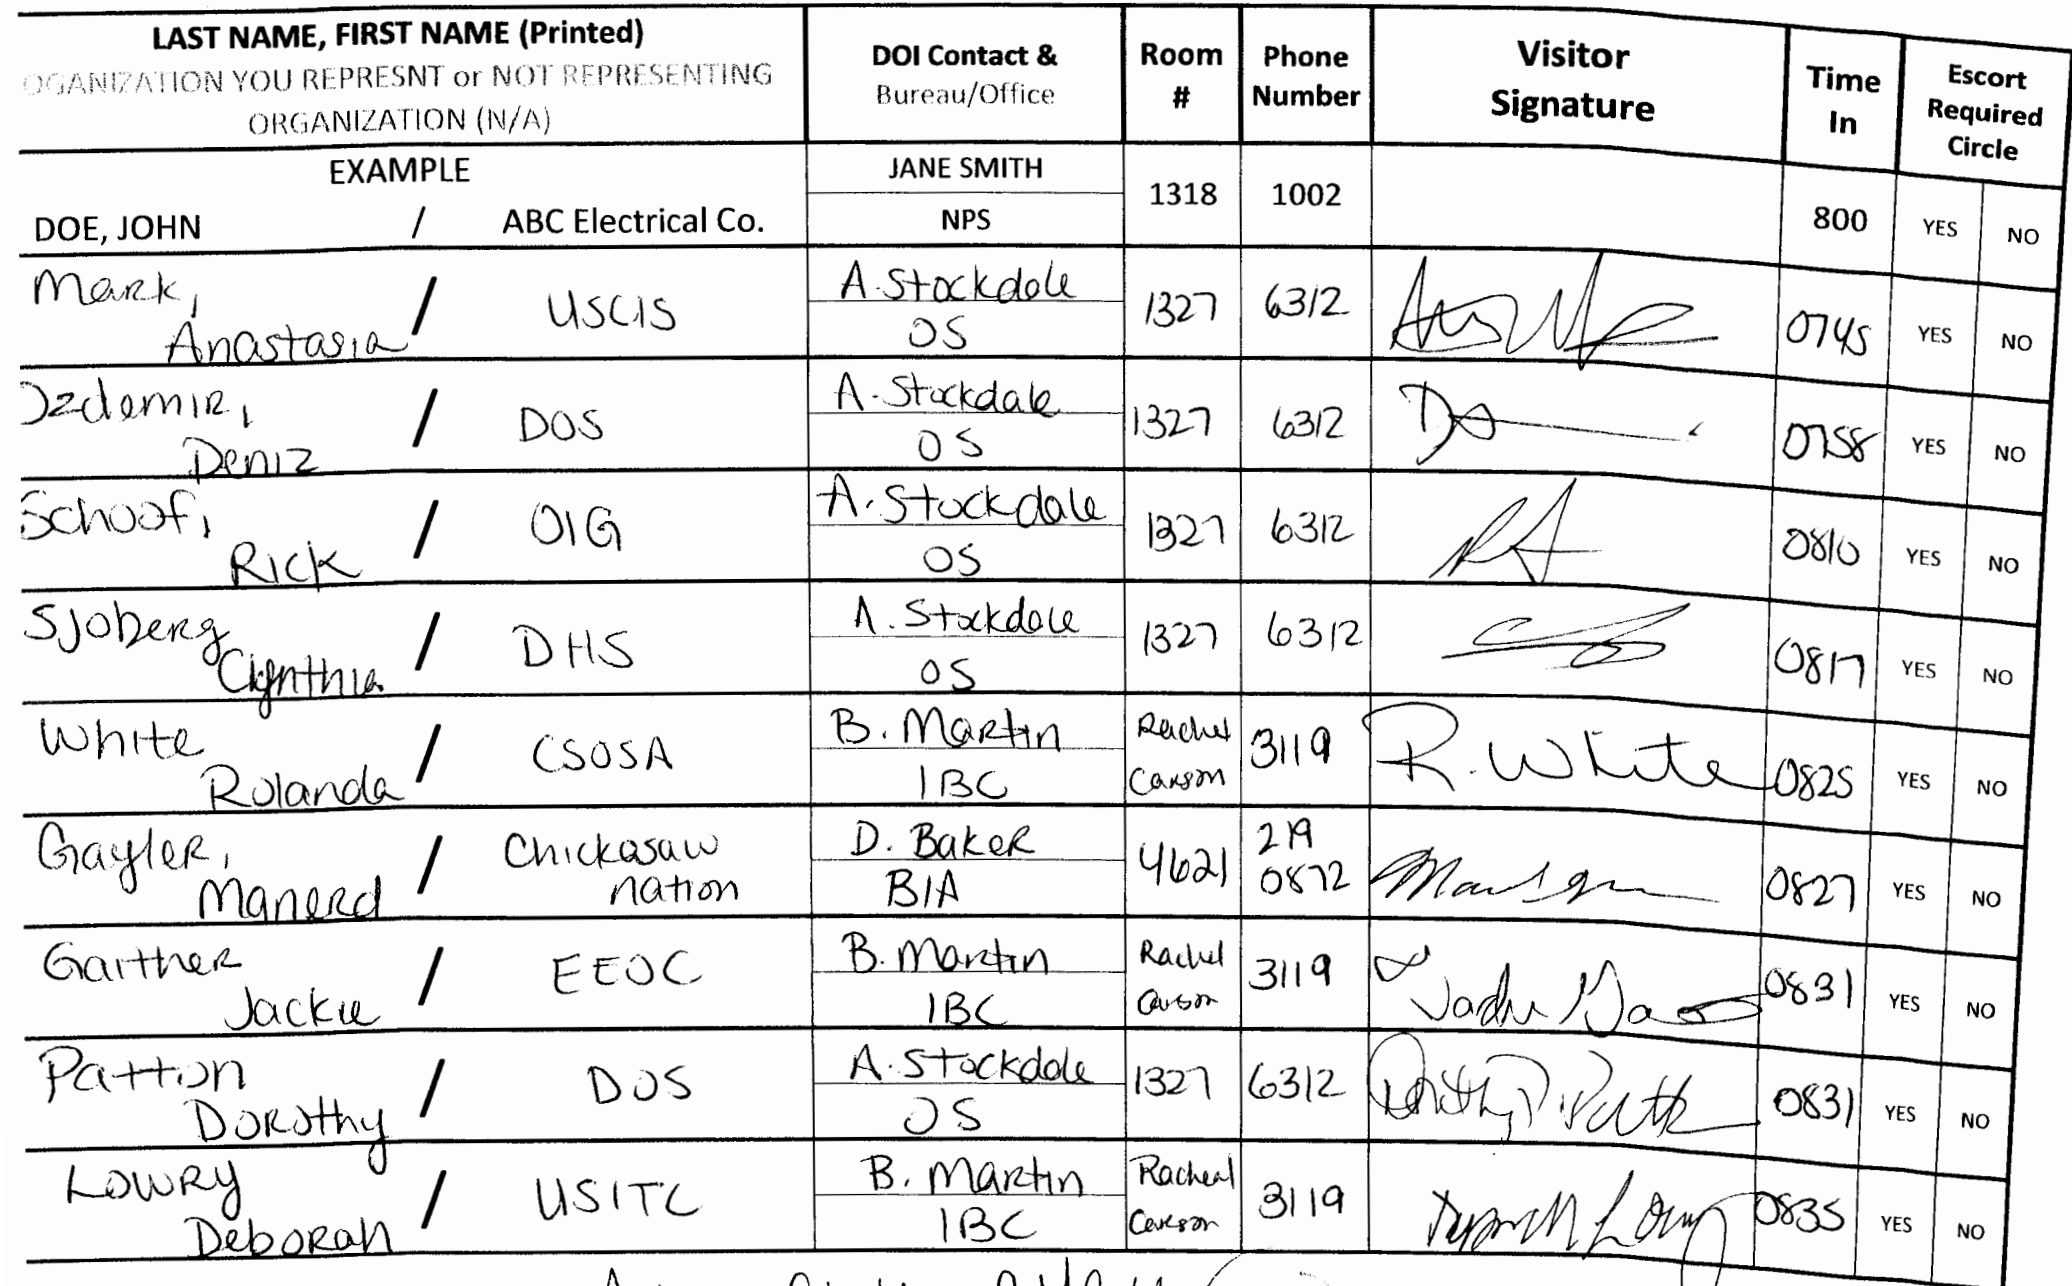 LAST NAME, FIRST NAME (Printed)
OGANIZATION YOU REPRESNT or NOT REPRESENTING
ORGANIZATION (N/A)
DOI Contact &
Bureau/Office
Room
#
Phone
Number
Visitor
Signature
Time
In
Escort
Required
Circle
EXAMPLE
DOE, JOHN / ABC Electrical Co.
JANE SMITH
NPS
1318 1002 800 YES NO
Mark,
Anastasia / USCIS
A. Stockdale
OS
1327 6312 0745 YES NO
Ozdemir,
Deniz / DOS
A. Stockdale
OS
1327 6312 0758 YES NO
Schoof,
Rick / OIG
A. Stockdale
OS
1327 6312 0810 YES NO
Sjoberg
Cynthia / DHS
A. Stockdale
OS
1327 6312 0817 YES NO
White
Rolanda / CSOSA
B. Martin
IBC
Rachel
Carson
3119 R. White 0825 YES NO
Gayler,
Manerd / Chickasaw
nation
D. Baker
BIA
4621
219
0872
0827 YES NO
Gaither
Jackie / EEOC
B. Martin
IBC
Rachel
Carson
3119 0831 YES NO
Patton
Dorothy / DOS
A. Stockdale
OS
1327 6312 0831 YES NO
Lowry
Deborah / USITC
B. Martin
IBC
Racheal
Carson
3119 0835 YES NO